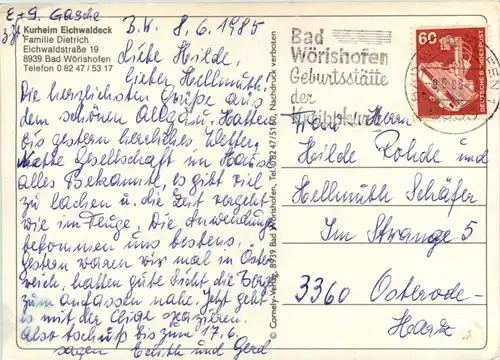 E+G. Gasche
z.Zt
Kurheim Eichwaldeck
Familie Dietrich
Eichwaldstraße 19
8939 Bad Wörishofen
Telefon 0 82 47 / 53 17
B.W. 8.6.1985
Liebe Hilde,
lieber Hellmuth,
Die herzlichsten Grüße aus
dem schönen Allgäu. Hatten
bis gestern herrliches Wetter,
nette Gesellschaft im Haus
alles Bekannte, es gibt viel
zu lachen u. die Zeit vergeht
wie im Fluge. Die Anwendungen
bekommen uns bestens,
gestern waren wir mal in Öster-
reich, hatten gute Sicht, die Berge
zum anfassen nahe. Jetzt geht
es mit der Clique spazieren.
Also tschüß bis zum 17.6.
sagen Edith und Gerd
© Cornely-Verlag, 8939 Bad Wörishofen, Tel. 08247/5160, Nachdruck verboten
Bad
Wörishofen
Geburtsstätte
der
60
DEUTSCHE BUNDESPOST
Frau / Herrn
Hilde Rohde und
Hellmuth Schäfer
Im Strange 5
3360 Osterode-
Harz